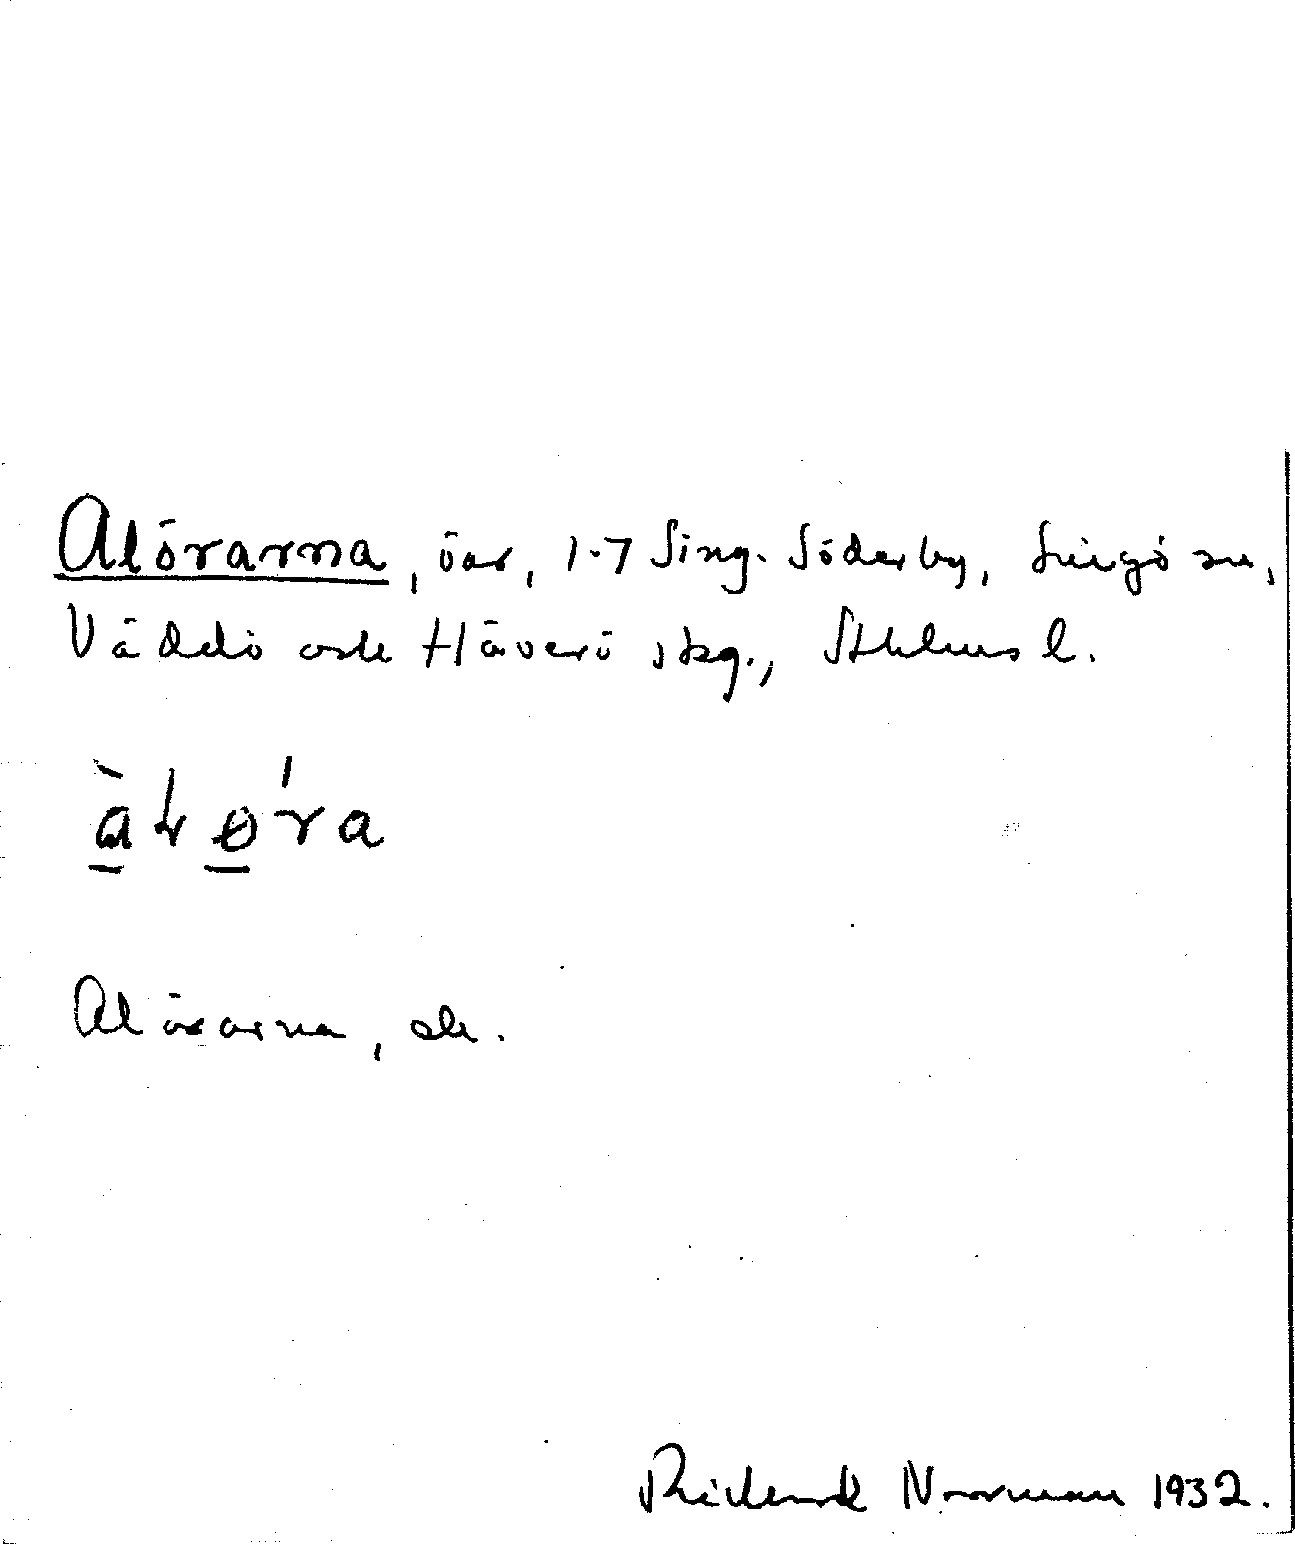 Alörarna, öar, 1-7 Sing. Söderby, Singö sn,
Väddö och Häverö skg., Sthlms l.
Alörarna, ek.
Rickard Norrman 1932.